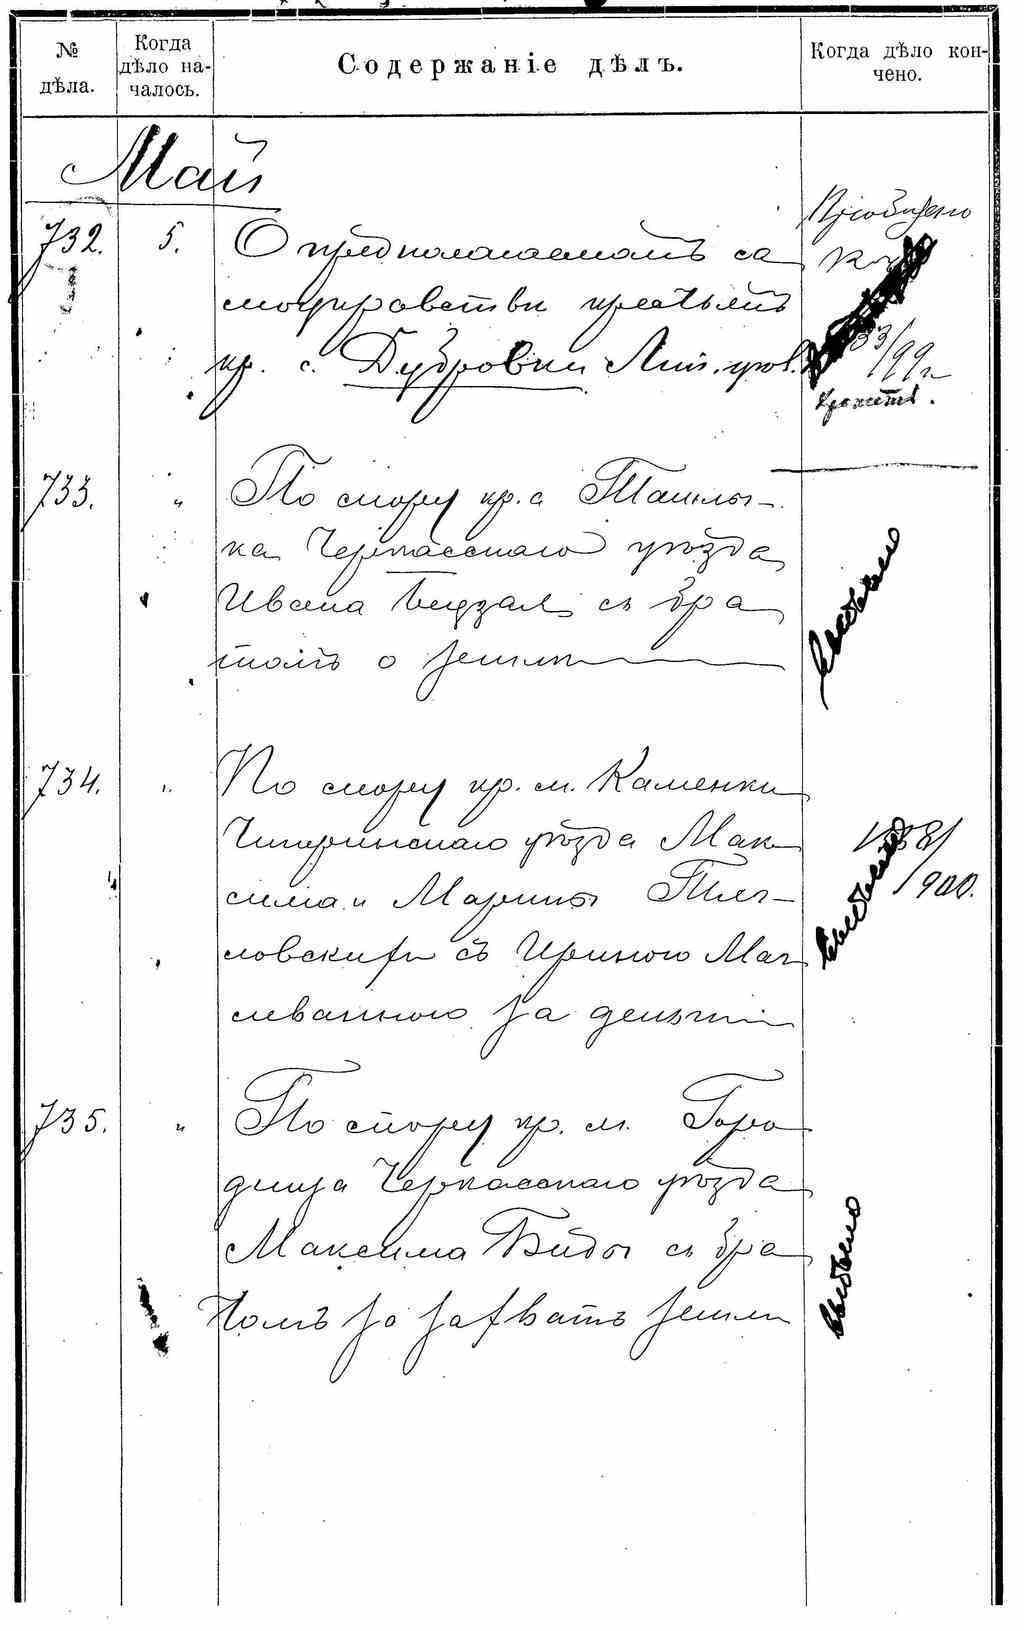 № дѣла.
Когда дѣло на-
чалось.
Содержаніе дѣлъ.
Когда дѣло кон-
чено.
Май
732.
5.
О предполагаемомъ са
моуправствѣ крестьянъ
кр. с. Дубровки Лип. уѣз.
Пріобщено
к
33/99 г.
733.
"
По спору кр. с Ташлы-
ка Черкасскаго уѣзда
Ивана с бра
томъ о землѣ
734.
"
По спору кр. м. Каменки
Чигиринскаго уѣзда Мак
сима и Марины
с Ириною
за деньги
/900.
735.
"
По спору кр. м. Горо
дища Черкасскаго уѣзда
Максима Бѣды с бра
томъ за захватъ земли